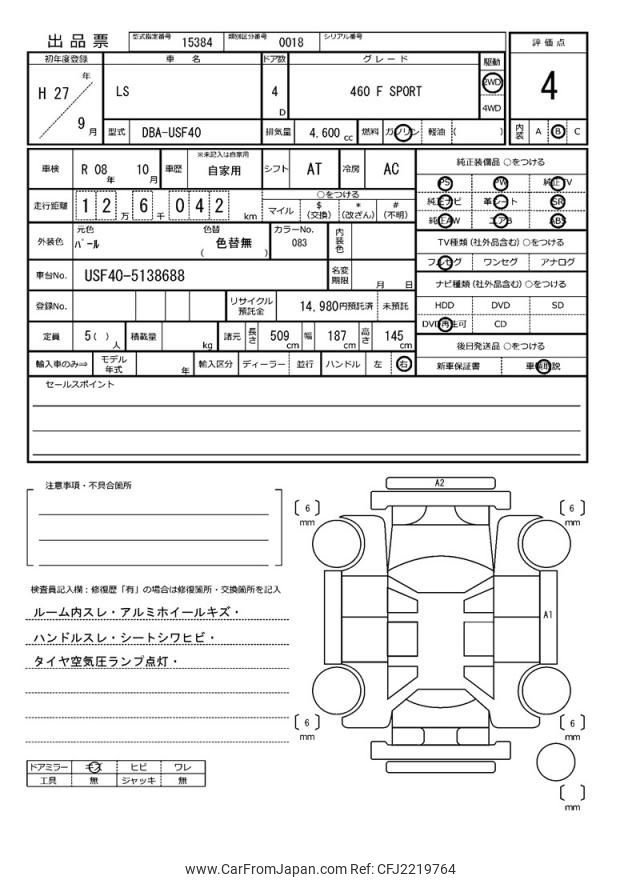 出品票 型式指定番号 15384 類別区分番号 0018 シリアル番号
評価点
4
内装 A B C
初年度登録 車名 ドア数 グレード 駆動
H 27 年 9 月
LS
4 D
460 F SPORT
2WD
4WD
型式 DBA-USF40 排気量 4,600 cc 燃料 ガソリン 軽油 ( )
車検 R 08 年 10 月 車歴 ※未記入は自家用 自家用 シフト AT 冷房 AC
走行距離 1 2 万 6 千 0 4 2 km ○をつける
マイル $ (交換) * (改ざん) # (不明)
外装色 元色 パール 色替 色替無 ( ) カラーNo. 083 内装色
車台No. USF40-5138688 名変期限 月 日
登録No. リサイクル預託金 14,980円預託済 未預託
定員 5 ( ) 人 積載量 kg 諸元 長さ 509 cm 幅 187 cm 高さ 145 cm
輸入車のみ⇒ モデル年式 年 輸入区分 ディーラー 並行 ハンドル 左 右
純正装備品 ○をつける
PS PW 純正TV
純正ナビ 革シート SR
純正AW エアB ABS
TV種類 (社外品含む) ○をつける
フルセグ ワンセグ アナログ
ナビ種類 (社外品含む) ○をつける
HDD DVD SD
DVD再生可 CD
後日発送品 ○をつける
新車保証書 車輌取説
セールスポイント
注意事項・不具合箇所
検査員記入欄：修復歴「有」の場合は修復箇所・交換箇所を記入
ルーム内スレ・アルミホイールキズ・
ハンドルスレ・シートシワヒビ・
タイヤ空気圧ランプ点灯・
ドアミラー キズ ヒビ ワレ
工具 無 ジャッキ 無
A2
[ 6 ] mm
[ 6 ] mm
A1
[ 6 ] mm
[ 6 ] mm
[ ] mm
www.CarFromJapan.com Ref: CFJ2219764